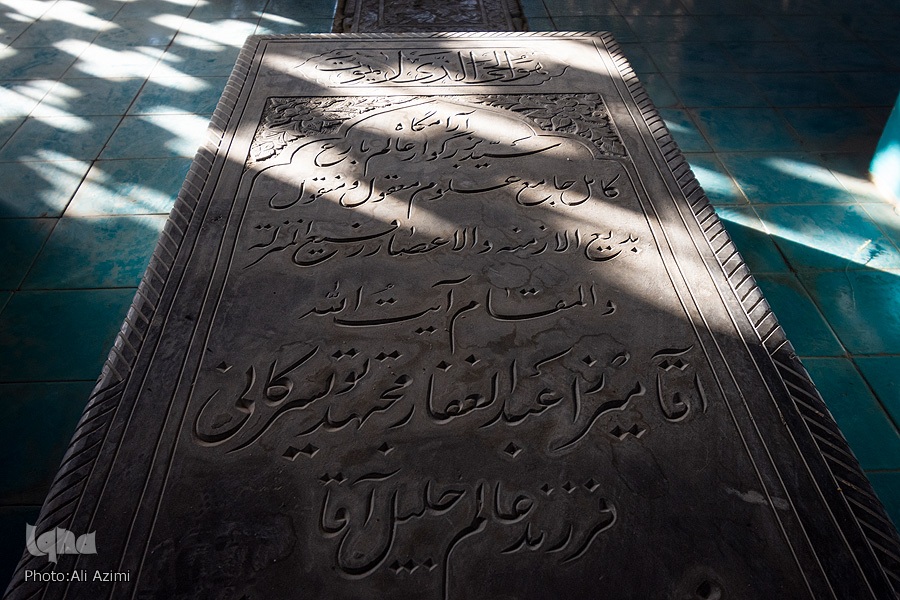 هو الحی الذی لا یموت
آرامگاه
سید بزرگوار عالم بارع
کامل جامع علوم معقول و منقول
بدیع الازمنه والاعصار رفیع المنزلة
والمقام آیت الله
آقا میرزا عبدالغفار مجتهد تویسرکانی
فرزند عالم جلیل آقا
iqna
Photo:Ali Azimi